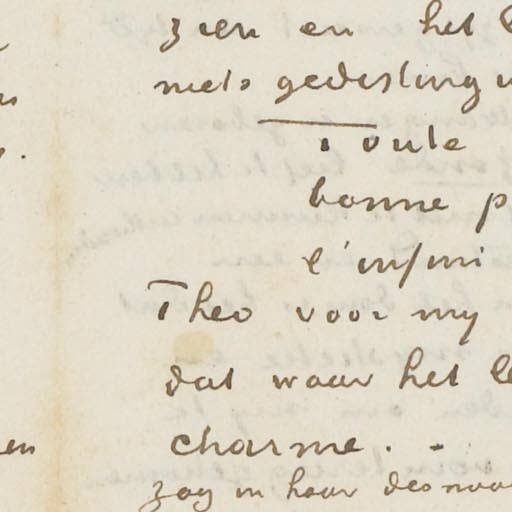 zien en het
niets gedistingu
Toute
bonne p
l'infini
Theo voor my
dat waar het le
en charme. -
zag in haar des noo